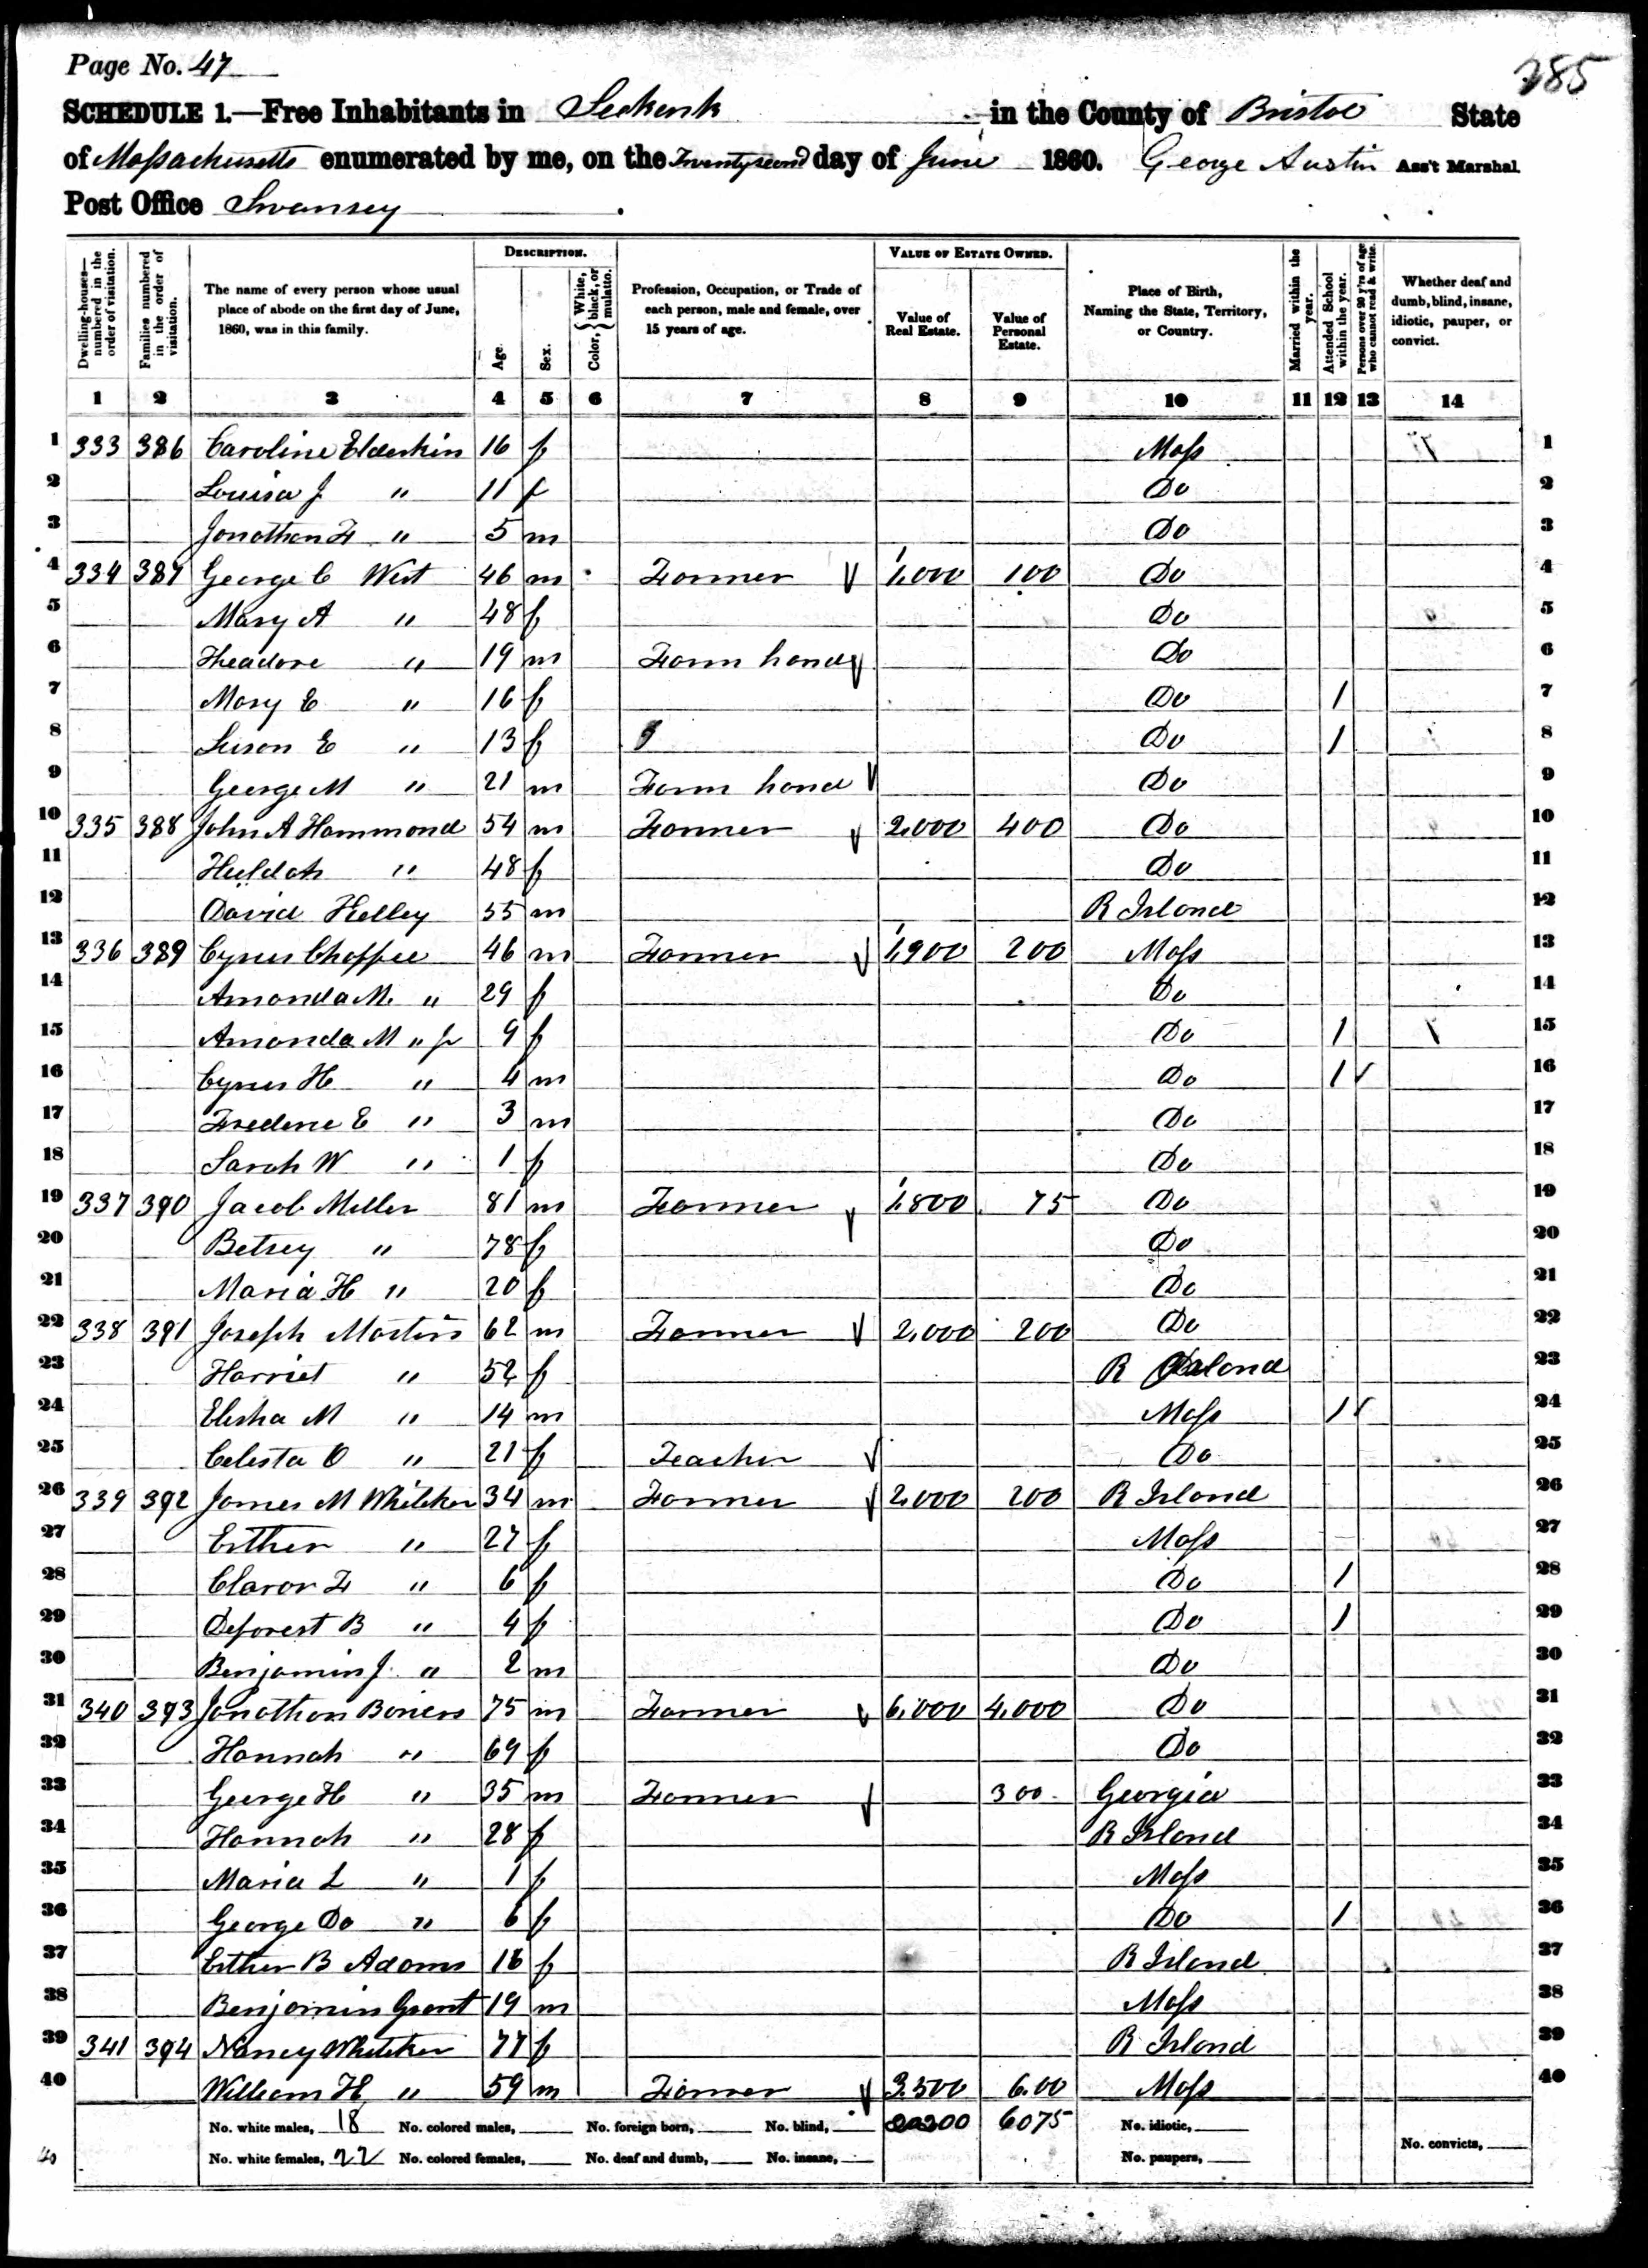 Page No. 47
285
SCHEDULE 1.—Free Inhabitants in Seekonk in the County of Bristol State
of Massachusetts enumerated by me, on the Twenty second day of June 1860. George Austin Ass't Marshal.
Post Office Swansey
Dwelling-houses—numbered in the order of visitation. Families numbered in the order of visitation. The name of every person whose usual place of abode on the first day of June, 1860, was in this family. DESCRIPTION. Age. Sex. Color, { White, black, or mulatto. Profession, Occupation, or Trade of each person, male and female, over 15 years of age. VALUE OF ESTATE OWNED. Value of Real Estate. Value of Personal Estate. Place of Birth, Naming the State, Territory, or Country. Married within the year. Attended School within the year. Persons over 20 y'rs of age who cannot read & write. Whether deaf and dumb, blind, insane, idiotic, pauper, or convict.
1 2 3 4 5 6 7 8 9 10 11 12 13 14
1 333 386 Caroline Elderkin 16 f Mass 1
2 Louisa J " 11 f Do 2
3 Jonathan F " 5 m Do 3
4 334 387 George C West 46 m Farmer 1,000 100 Do 4
5 Mary A " 48 f Do 5
6 Theadore " 19 m Farm hand Do 6
7 Mary E " 16 f Do 1 7
8 Suson E " 13 f Do 1 8
9 George M " 21 m Farm hand Do 9
10 335 388 John A Hammond 54 m Farmer 2,000 400 Do 10
11 Huldah " 48 f Do 11
12 David Kelley 55 m R Island 12
13 336 389 Cyrus Chaffee 46 m Farmer 1,900 200 Mass 13
14 Amanda M. " 29 f Do 14
15 Amanda M " Jr 9 f Do 1 15
16 Cyrus H " 4 m Do 1 16
17 Frederic E " 3 m Do 17
18 Sarah W " 1 f Do 18
19 337 390 Jacob Miller 81 m Farmer 1,800 75 Do 19
20 Betsey " 78 f Do 20
21 Maria H " 20 f Do 21
22 338 391 Joseph Martin 62 m Farmer 2,000 200 Do 22
23 Harriet " 52 f R Island 23
24 Elisha M " 14 m Mass 1 24
25 Celesta O " 21 f Teacher Do 25
26 339 392 James M Whiteker 34 m Farmer 2,000 200 R Island 26
27 Esther " 27 f Mass 27
28 Claror F " 6 f Do 1 28
29 Deforest B " 4 f Do 1 29
30 Benjamin J " 2 m Do 30
31 340 393 Jonathan 75 m Farmer 6,000 4,000 Do 31
32 Hannah " 69 f Do 32
33 George H " 35 m Farmer 300 Georgia 33
34 Hannah " 28 f R Island 34
35 Maria L " 1 f Mass 35
36 George Do " 6 f Do 1 36
37 Esther B Adams 16 f R Island 37
38 Benjamin Grant 19 m Mass 38
39 341 394 Nancy Whiteker 77 f R Island 39
40 William H " 59 m Farmer 3,500 6.00 Mass 40
No. white males, 18 No. colored males, No. foreign born, No. blind, 20200 6075 No. idiotic,
No. white females, 22 No. colored females, No. deaf and dumb, No. insane, No. paupers, No. convicts,